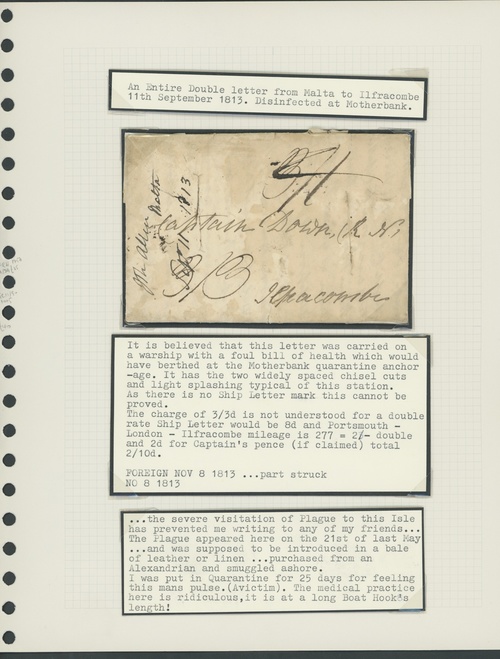 An Entire Double letter from Malta to Ilfracombe
11th September 1813. Disinfected at Motherbank.
Malta
1813
Captain Down, R N,
Ilfracombe
It is believed that this letter was carried on
a warship with a foul bill of health which would
have berthed at the Motherbank quarantine anchor
-age. It has the two widely spaced chisel cuts
and light splashing typical of this station.
As there is no Ship Letter mark this cannot be
proved.
The charge of 3/3d is not understood for a double
rate Ship Letter would be 8d and Portsmouth -
London - Ilfracombe mileage is 277 = 2/- double
and 2d for Captain's pence (if claimed) total
2/10d.
FOREIGN NOV 8 1813 ...part struck
NO 8 1813
...the severe visitation of Plague to this Isle
has prevented me writing to any of my friends...
The Plague appeared here on the 21st of last May
...and was supposed to be introduced in a bale
of leather or linen ...purchased from an
Alexandrian and smuggled ashore.
I was put in Quarantine for 25 days for feeling
this mans pulse.(Avictim). The medical practice
here is ridiculous,it is at a long Boat Hook's
length!